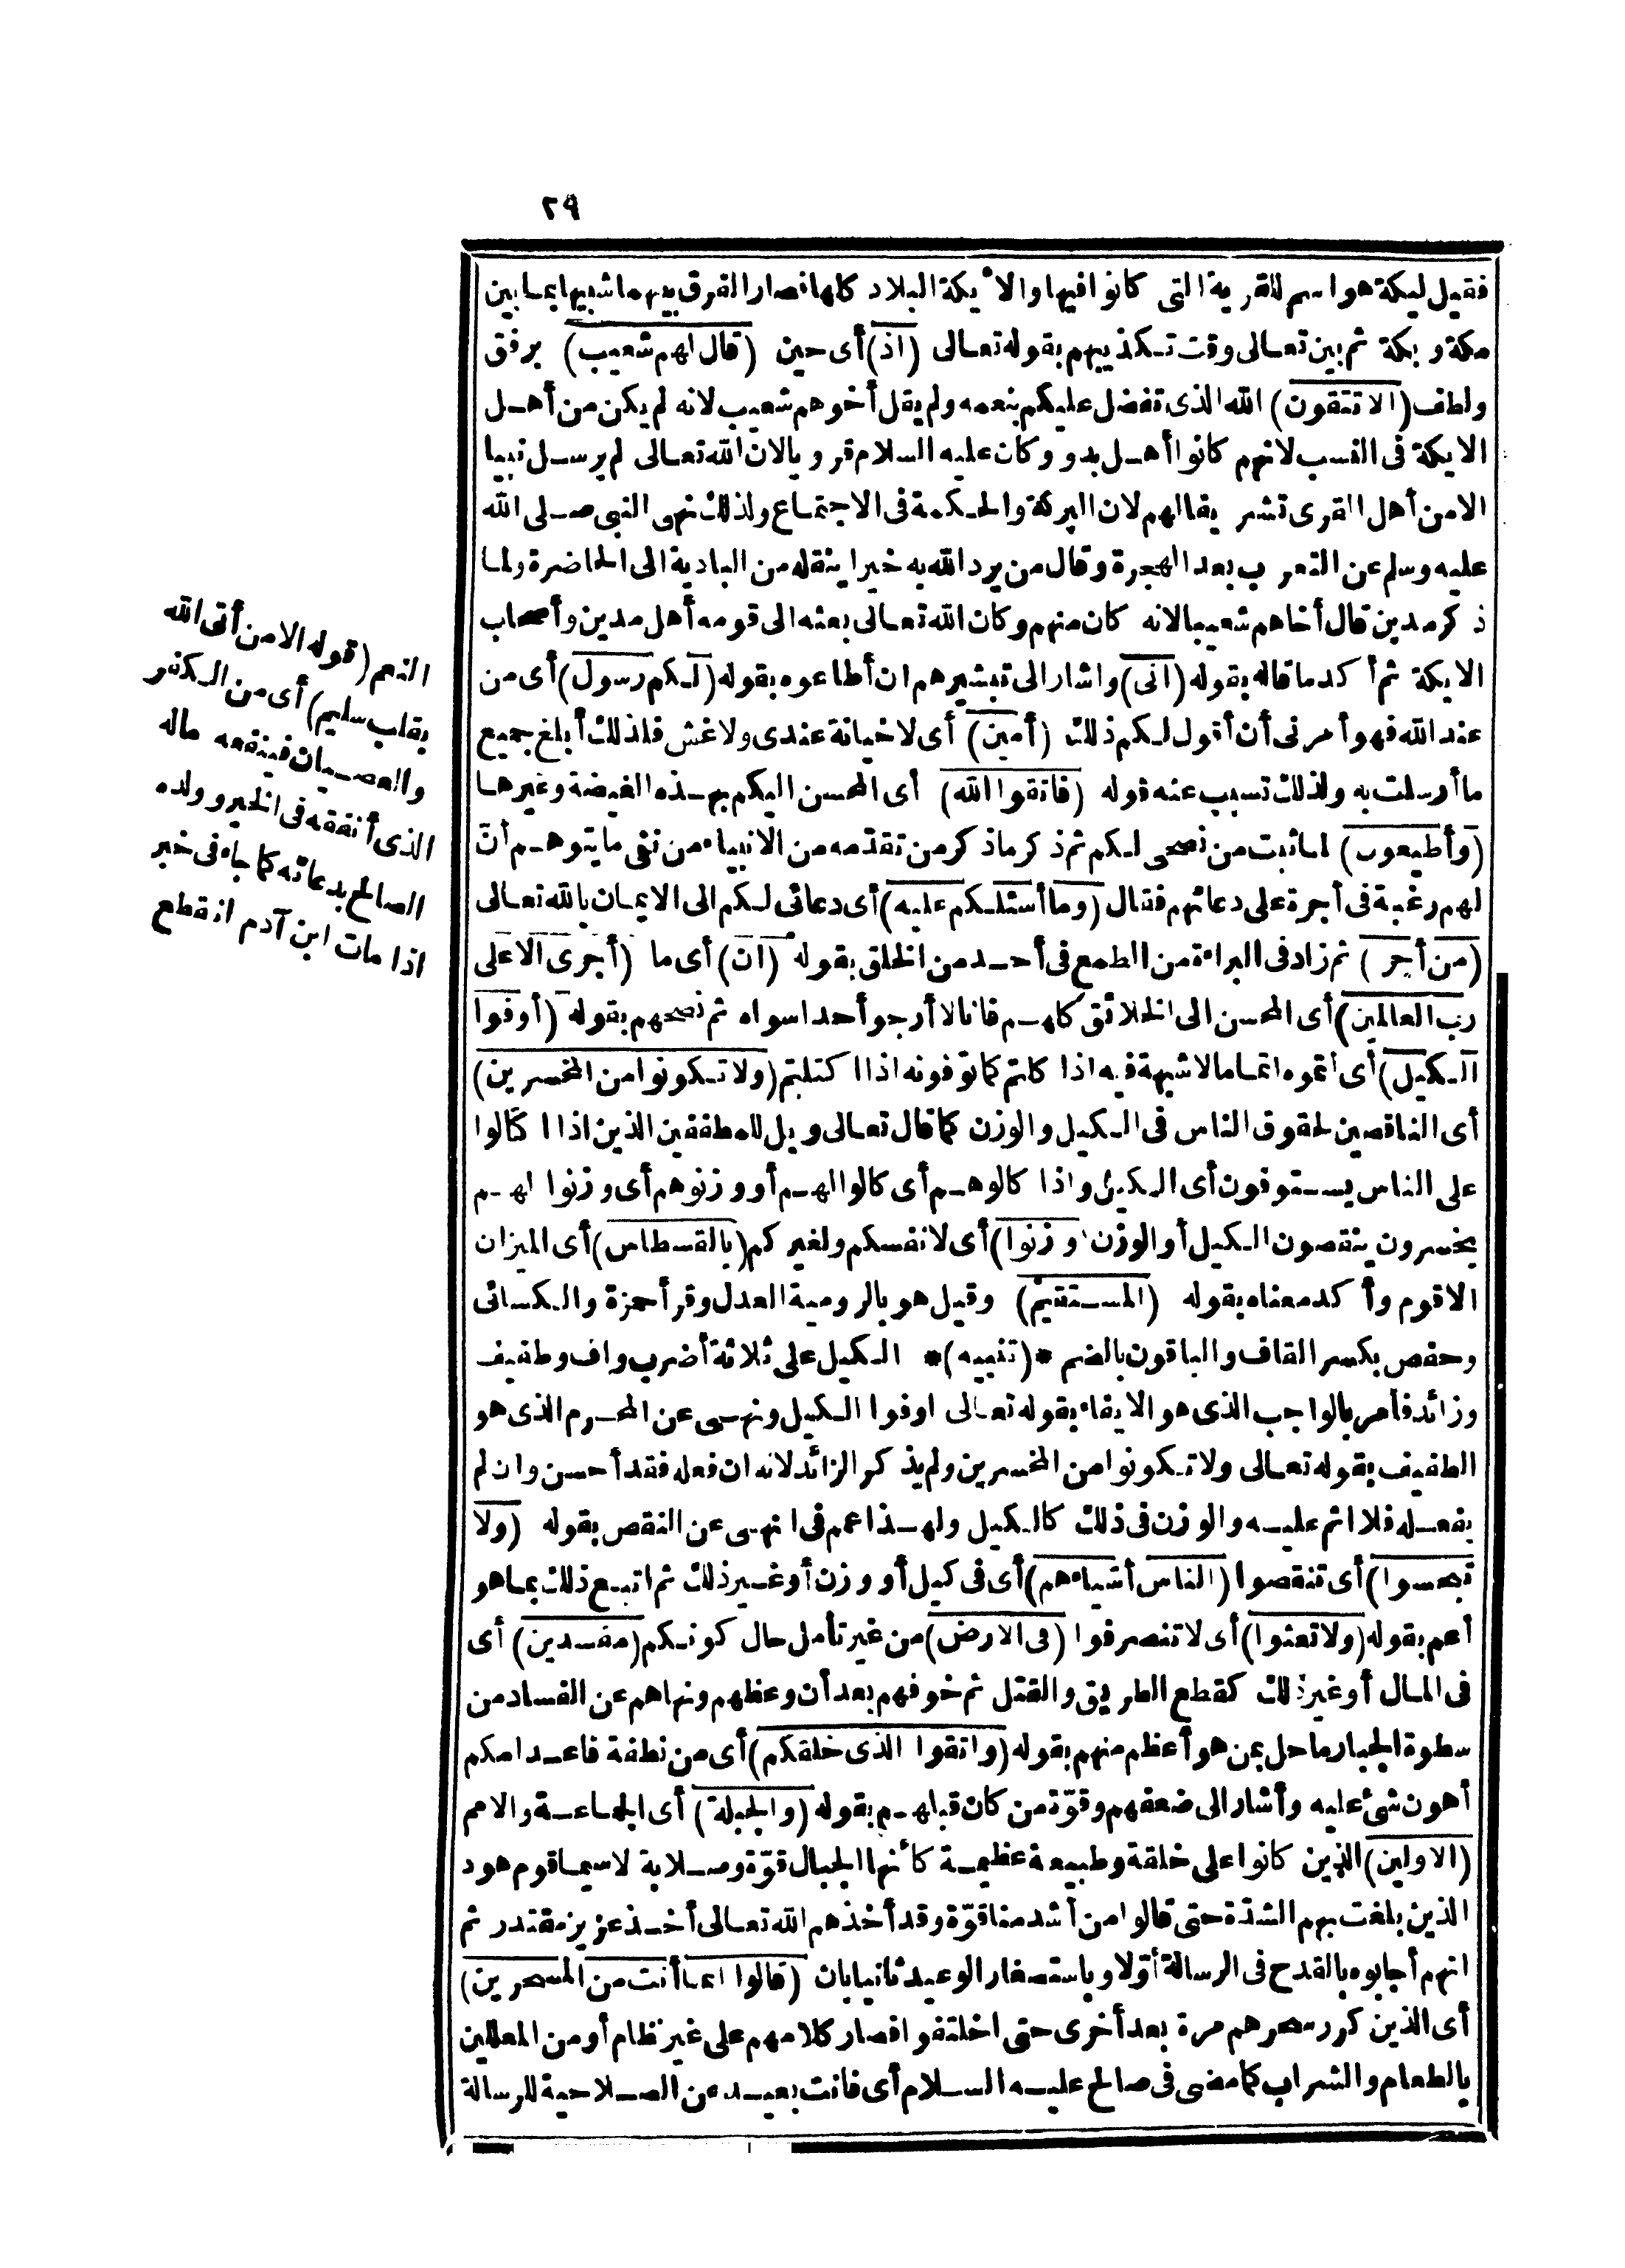 ٢٩
فقيل ليكة هو اسم للقرية التى كانوا فيها والأيكة البلاد كلها فصار الفرق بينهما شبيها بما بين
مكة وبكة ثم بين تعالى وقت تكذيبهم بقوله تعالى (اذ) أى حين (قال لهم شعيب) برفق
ولطف (الا تتقون) الله الذى تفضل عليكم بنعمه ولم يقل أخوهم شعيب لانه لم يكن من أهل
الايكة فى النسب لانهم كانوا أهل بدو وكان عليه السلام قرويا لان الله تعالى لم يرسل نبيا
الا من أهل القرى تشريفا لهم لان البركة والحكمة فى الاجتماع ولذلك نهى النبى صلى الله
عليه وسلم عن التعرب بعد الهجرة وقال من يرد الله به خيرا ينقله من البادية الى الحاضرة ولما
ذكر مدين قال أخاهم شعيبا لانه كان منهم وكان الله تعالى بعثه الى قومه أهل مدين وأصحاب
الايكة ثم أكد ما قاله بقوله (انى) واشار الى تبشيرهم ان أطاعوه بقوله (لكم رسول) أى من
عند الله فهو أمرنى أن أقول لكم ذلك (أمين) أى لا خيانة عندى ولا غش فلذلك أبلغ جميع
ما أرسلت به ولذلك تسبب عنه قوله (فاتقوا الله) أى المحسن اليكم بهذه الغيضة وغيرها
(وأطيعون) لما ثبت من نصحى لكم ثم ذكر ما ذكر من تقدمه من الانبياء من نفى ما يتوهم أن
لهم رغبة فى أجرة على دعائهم فقال (وما أسئلكم عليه) أى دعائى لكم الى الايمان بالله تعالى
(من أجر) ثم زاد فى البراءة من الطمع فى أحد من الخلق بقوله (ان) أى ما (أجرى الا على
رب العالمين) أى المحسن الى الخلائق كلهم فانا لا أرجو أحدا سواه ثم نصحهم بقوله (أوفوا
الكيل) أى اتموه اتماما لا شبهة فيه اذا كلتم كما توفونه اذا اكتلتم (ولا تكونوا من المخسرين)
أى الناقصين لحقوق الناس فى الكيل والوزن كما قال تعالى ويل للمطففين الذين اذا اكتالوا
على الناس يستوفون أى الكيل واذا كالوهم أى كالوا لهم أو وزنوهم أى وزنوا لهم
يخسرون ينقصون الكيل أو الوزن (وزنوا) أى لانفسكم ولغيركم (بالقسطاس) أى الميزان
الاقوم وأكد معناه بقوله (المستقيم) وقيل هو بالرومية العدل وقرأ حمزة والكسائى
وحفص بكسر القاف والباقون بالضم *(تنبيه)* الكيل على ثلاثة أضرب واف وطفيف
وزائد فأمر بالواجب الذى هو الايفاء بقوله تعالى اوفوا الكيل ونهى عن المحرم الذى هو
الطفيف بقوله تعالى ولا تكونوا من المخسرين ولم يذكر الزائد لانه ان فعله فقد أحسن وان لم
يفعله فلا اثم عليه والوزن فى ذلك كالكيل ولهذا عمم فى النهى عن النقص بقوله (ولا
تبخسوا) أى تنقصوا (الناس أشياءهم) أى فى كيل أو وزن أو غير ذلك ثم اتبع ذلك بما هو
أعم بقوله (ولا تعثوا) أى لا تتصرفوا (فى الارض) من غير تأمل حال كونكم (مفسدين) أى
فى المال أو غير ذلك كقطع الطريق والقتل ثم خوفهم بعد أن وعظهم ونهاهم عن الفساد من
سطوة الجبار ما حل بمن هو أعظم منهم بقوله (واتقوا الذى خلقكم) أى من نطفة فاعدامكم
أهون شئ عليه وأشار الى ضعفهم وقوّة من كان قبلهم بقوله (والجبلة) أى الجماعة والامم
(الاولين) الذين كانوا على خلقة وطبيعة عظيمة كأنها الجبال قوّة وصلابة لا سيما قوم هود
الذين بلغت بهم الشدّة حتى قالوا من أشد منا قوّة وقد أخذهم الله تعالى أخذ عزيز مقتدر ثم
انهم أجابوه بالقدح فى الرسالة أوّلا وباستصغار الوعيد ثانيا بان (قالوا انما أنت من المسحرين)
أى الذين كرر سحرهم مرة بعد أخرى حتى اختلفوا فصار كلامهم على غير نظام أو من المعللين
بالطعام والشراب كما مضى فى صالح عليه السلام أى فانت بعيد عن الصلاحية للرسالة
النعم (قوله الا من أتى الله
بقلب سليم) أى من الكفر
والعصيان فينفعه ماله
الذى أنفقه فى الخير وولده
الصالح بدعائه كما جاء فى خبر
اذا مات ابن آدم انقطع